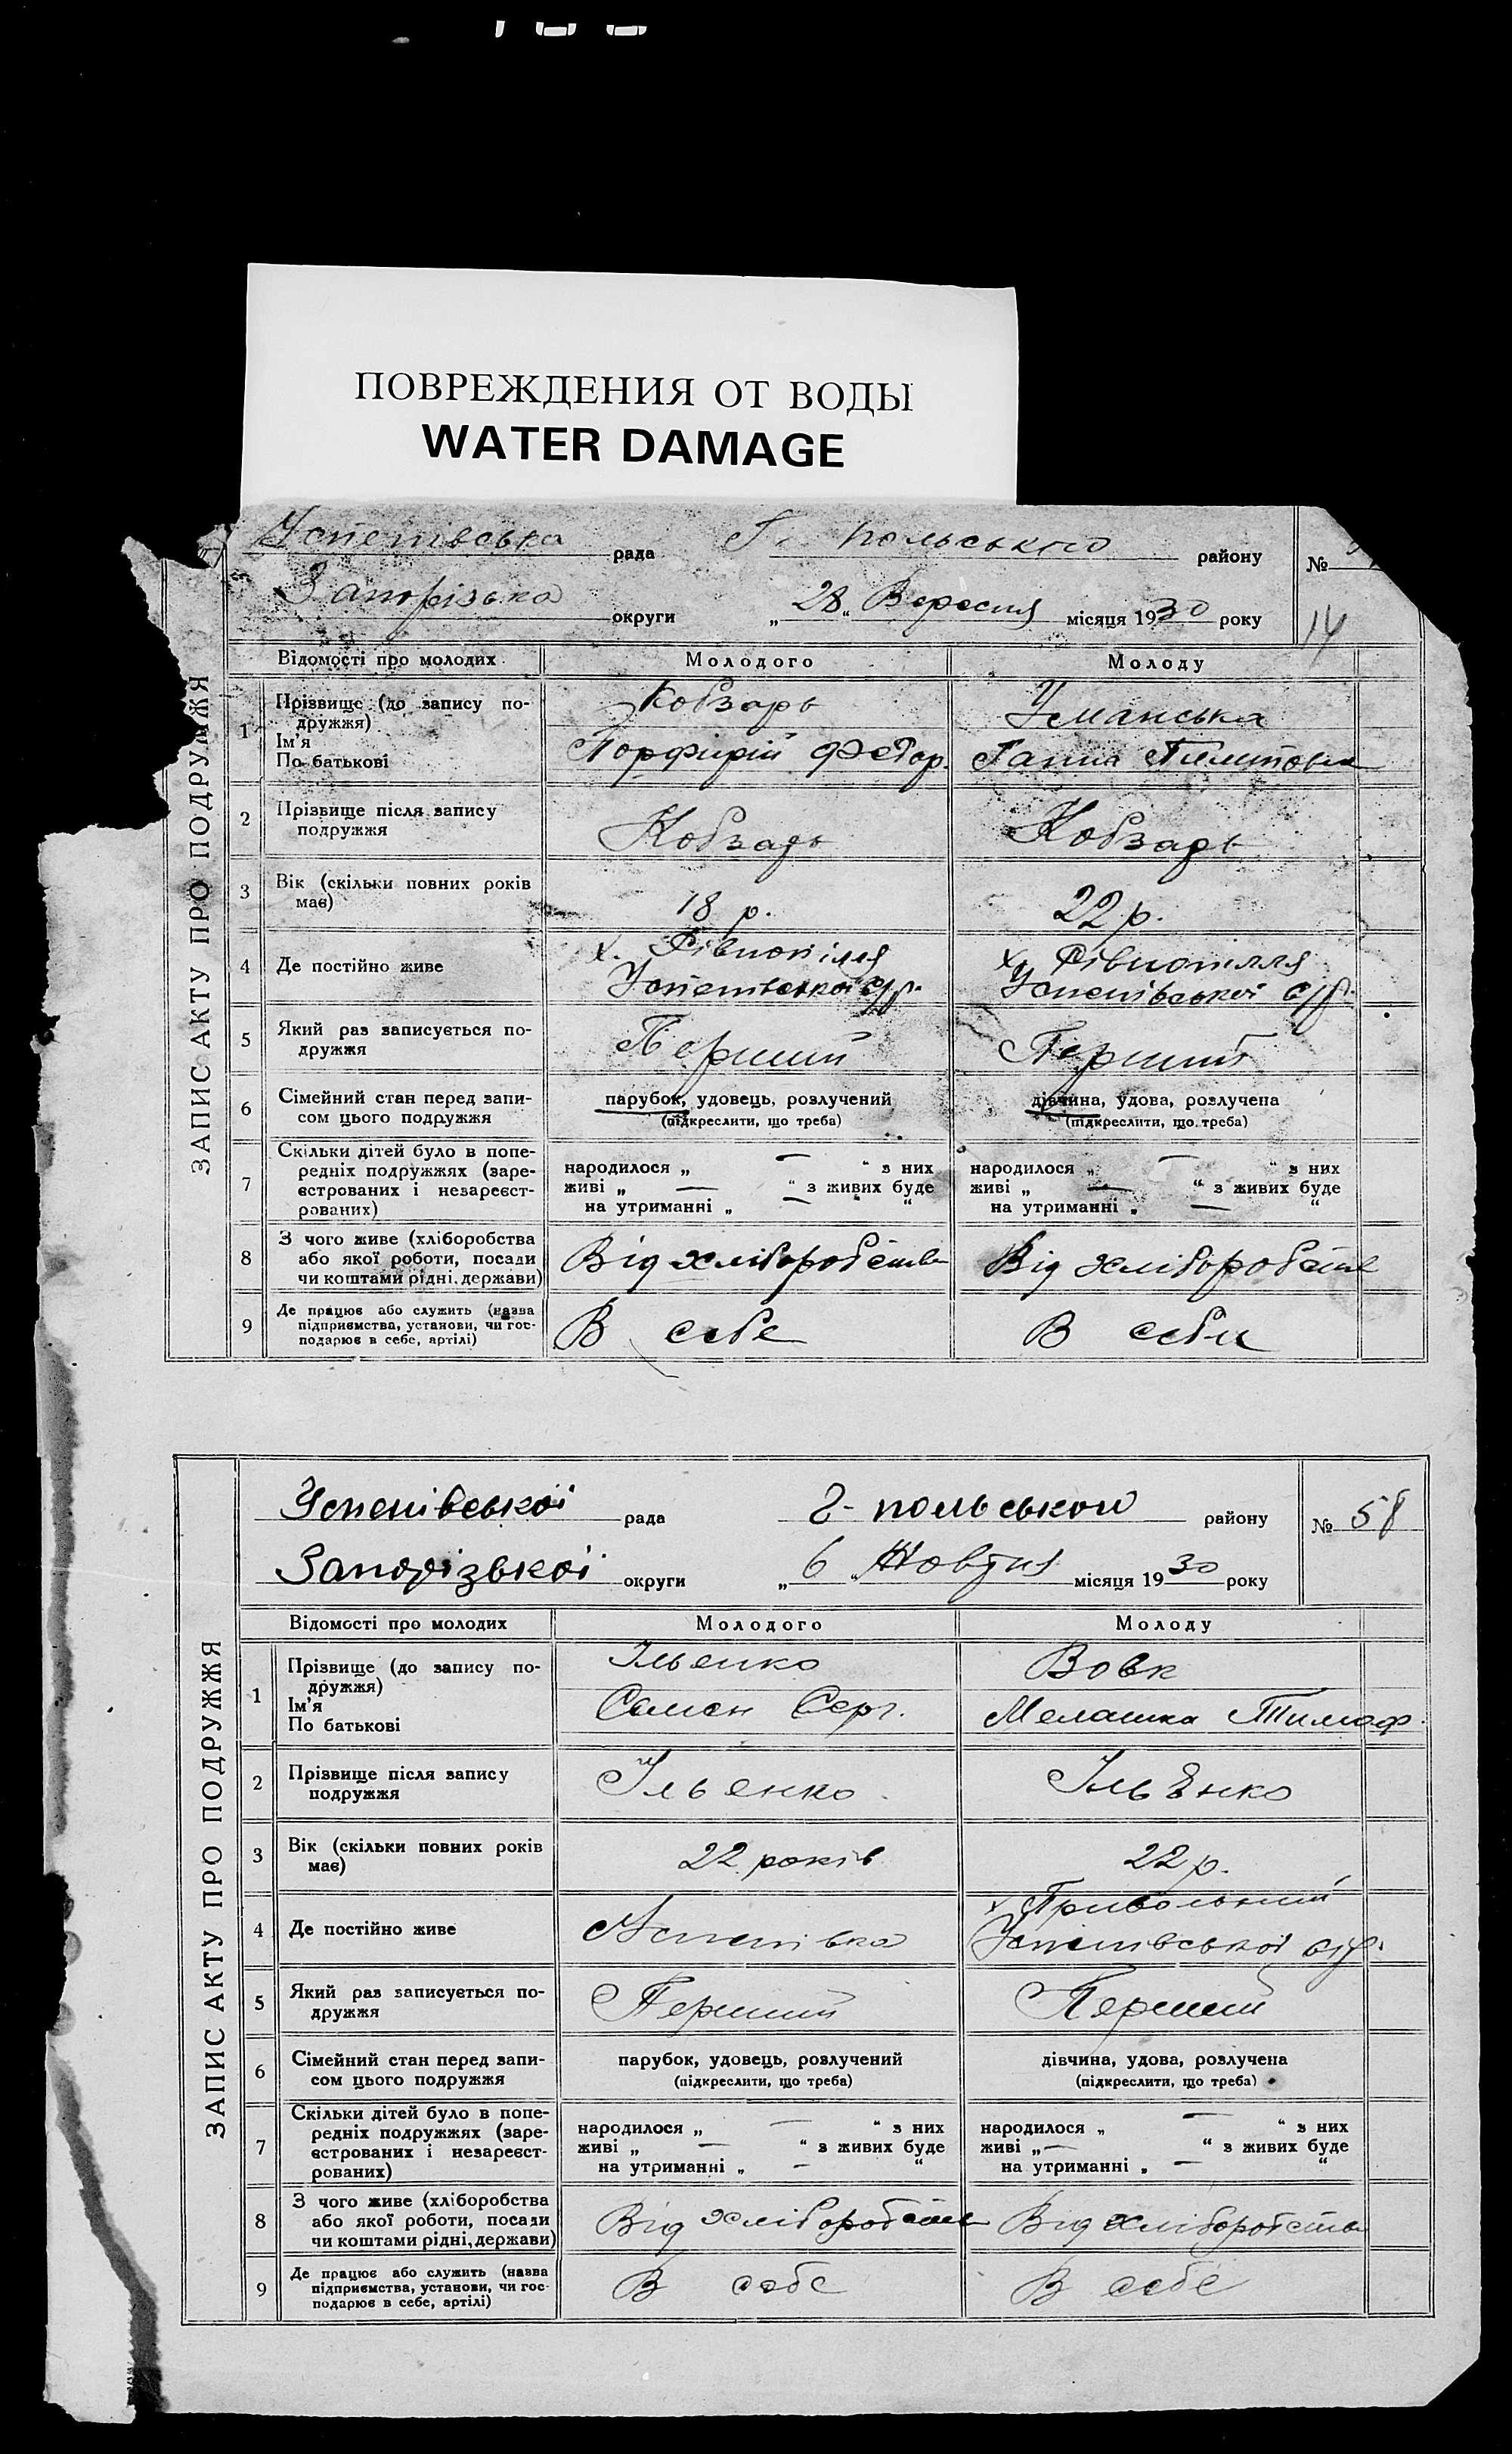 ПОВРЕЖДЕНИЯ ОТ ВОДЫ
WATER DAMAGE
ЗАПИС АКТУ ПРО ПОДРУЖЖЯ
Успенівська рада Г. польського району №
Запорізька округи „28“ Вересня місяця 1930 року 14
Відомості про молодих Молодого Молоду
1 Прізвище (до запису по- Кобзарь Уманська
дружжя)
Ім'я Порфирій Федор. Ганна
По батькові
2 Прізвище після запису Кобзарь Кобзарь
подружжя
3 Вік (скільки повних років 18 р. 22 р.
має)
4 Де постійно живе х. Рівнопілля х. Рівнопілля
Успенівської с/р. Успенівської с/р.
5 Який раз записується по- Перший Перший
дружжя
6 Сімейний стан перед запи- парубок, удовець, розлучений дівчина, удова, розлучена
сом цього подружжя (підкреслити, що треба) (підкреслити, що треба)
7 Скільки дітей було в попе-
редніх подружжях (заре- народилося „ — “ з них народилося „ — “ з них
єстрованих і незареєст- живі „ — “ з живих буде живі „ — “ з живих буде
рованих) на утриманні „ — “ на утриманні „ — “
8 З чого живе (хліборобства
або якої роботи, посади Від хліборобства Від хліборобства
чи коштами рідні, держави)
9 Де працює або служить (назва
підприємства, установи, чи гос- В себе В себе
подарює в себе, артілі)
ЗАПИС АКТУ ПРО ПОДРУЖЖЯ
Успенівської рада Г-польського району № 58
Запорізької округи „6“ Жовтня місяця 1930 року
Відомості про молодих Молодого Молоду
1 Прізвище (до запису по- Ільенко Вовк
дружжя)
Ім'я Семен Серг. Мелашка Тимоф.
По батькові
2 Прізвище після запису Ільенко Ільєнко
подружжя
3 Вік (скільки повних років 22 років 22 р.
має)
4 Де постійно живе Успенівка х. Привольний
Успенівської с/р.
5 Який раз записується по- Перший Перший
дружжя
6 Сімейний стан перед запи- парубок, удовець, розлучений дівчина, удова, розлучена
сом цього подружжя (підкреслити, що треба) (підкреслити, що треба)
7 Скільки дітей було в попе-
редніх подружжях (заре- народилося „ — “ з них народилося „ — “ з них
єстрованих і незареєст- живі „ — “ з живих буде живі „ — “ з живих буде
рованих) на утриманні „ — “ на утриманні „ — “
8 З чого живе (хліборобства
або якої роботи, посади Від хліборобства Від хліборобства
чи коштами рідні, держави)
9 Де працює або служить (назва
підприємства, установи, чи гос- В себе В себе
подарює в себе, артілі)